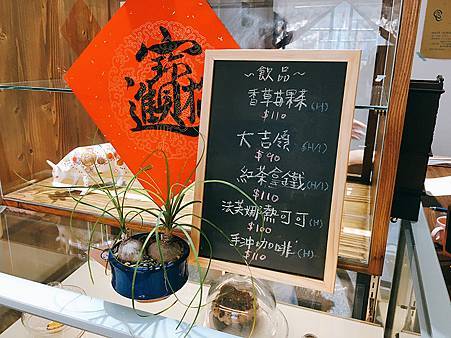 ～飲品～
香草莓果茶(H)
$110
大吉嶺(H/I)
$90
紅茶拿鐵(H/I)
$110
法芙娜熱可可(H)
$100
手沖咖啡(H)
$110
招財進寶